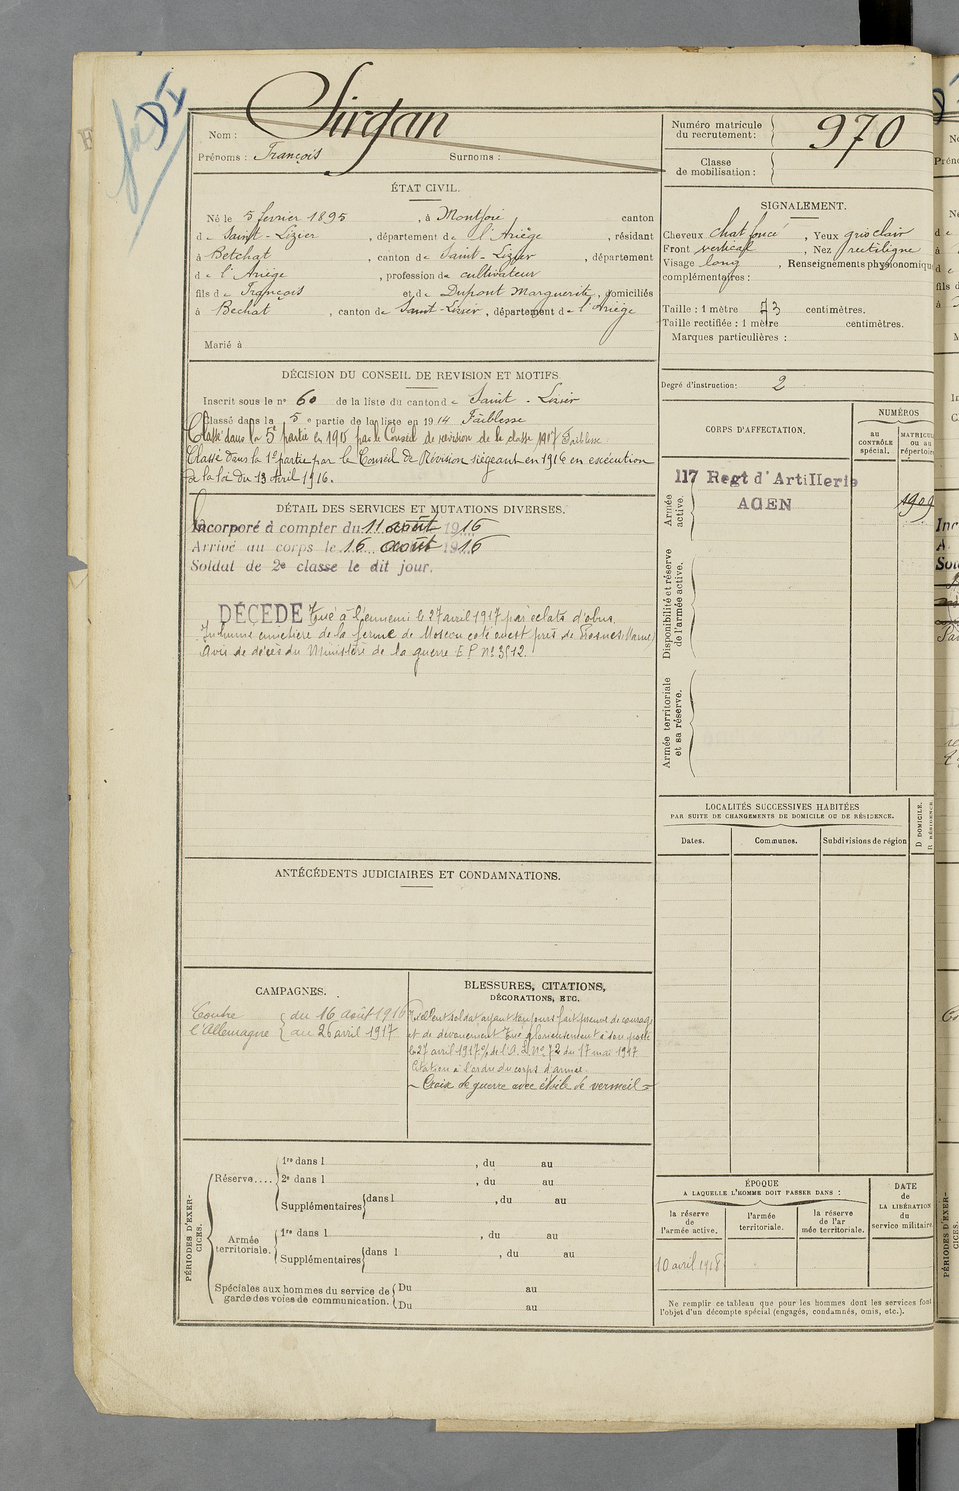 Nom : Sirgan
Prénoms : François Surnoms :
Numéro matricule du recrutement : 970
Classe de mobilisation :
ÉTAT CIVIL.
Né le 5 février 1895, à Montfort canton
de Saint-Lizier, département de l'Ariège, résidant
à Betchat, canton de Saint-Lizier, département
de l'Ariège, profession de cultivateur
fils de François et de Dupont Marguerite, domiciliés
à Bechat, canton de Saint-Lizier, département de l'Ariège
Marié à
SIGNALEMENT.
Cheveux chat foncé, Yeux gris clair
Front vertical, Nez rectiligne
Visage long, Renseignements physionomiques
complémentaires :
Taille : 1 mètre 73 centimètres.
Taille rectifiée : 1 mètre centimètres.
Marques particulières :
Degré d'instruction : 2
DÉCISION DU CONSEIL DE REVISION ET MOTIFS.
Inscrit sous le n° 60 de la liste du canton de Saint-Lizier
Classé dans la 5e partie de la liste en 1914 Faiblesse
Classé dans la 5e partie en 1915 par le Conseil de révision de la classe 1917 Faiblesse
Classé dans la 1e partie par le Conseil de Révision siégeant en 1916 en exécution
de la loi du 13 Avril 1916.
DÉTAIL DES SERVICES ET MUTATIONS DIVERSES.
Incorporé à compter du 11 août 1916
Arrivé au corps le 16 août 1916
Soldat de 2e classe le dit jour.
DÉCÉDÉ Tué à l'ennemi le 27 avril 1917 par éclats d'obus.
Inhumé cimetière de la ferme de Moscou coté ouest près de Prosnes (Marne)
Avis de décès du Ministère de la guerre E.P. n° 3512.
CORPS D'AFFECTATION.
NUMÉROS
AU CONTRÔLE spécial.
MATRICULE ou au répertoire
Armée active.
117 Regt d'Artillerie
AGEN
1909
Disponibilité et réserve de l'armée active.
Armée territoriale et sa réserve.
LOCALITÉS SUCCESSIVES HABITÉES
PAR SUITE DE CHANGEMENTS DE DOMICILE OU DE RÉSIDENCE.
Dates. Communes. Subdivisions de région
D. DOMICILE.
R. RÉSIDENCE.
ANTÉCÉDENTS JUDICIAIRES ET CONDAMNATIONS.
CAMPAGNES.
Contre l'Allemagne
du 16 août 1916
au 26 avril 1917
BLESSURES, CITATIONS,
DÉCORATIONS, ETC.
Excellent soldat ayant toujours fait preuve de courage
et de dévouement Tué glorieusement à son poste
le 27 avril 1917 % de l'A. n° 72 du 17 mai 1917
Citation à l'ordre du corps d'armée.
Croix de guerre avec étoile de vermeil
PÉRIODES D'EXERCICES.
Réserve....
1re dans l , du au
2e dans l , du au
Supplémentaires dans l , du au
Armée territoriale.
1re dans l , du au
Supplémentaires dans l , du au
Spéciales aux hommes du service de garde des voies de communication.
Du au
Du au
ÉPOQUE
A LAQUELLE L'HOMME DOIT PASSER DANS :
la réserve de l'armée active.
l'armée territoriale.
la réserve de l'armée territoriale.
DATE de LA LIBÉRATION du service militaire.
10 avril 1918
Ne remplir ce tableau que pour les hommes dont les services font
l'objet d'un décompte spécial (engagés, condamnés, omis, etc.).